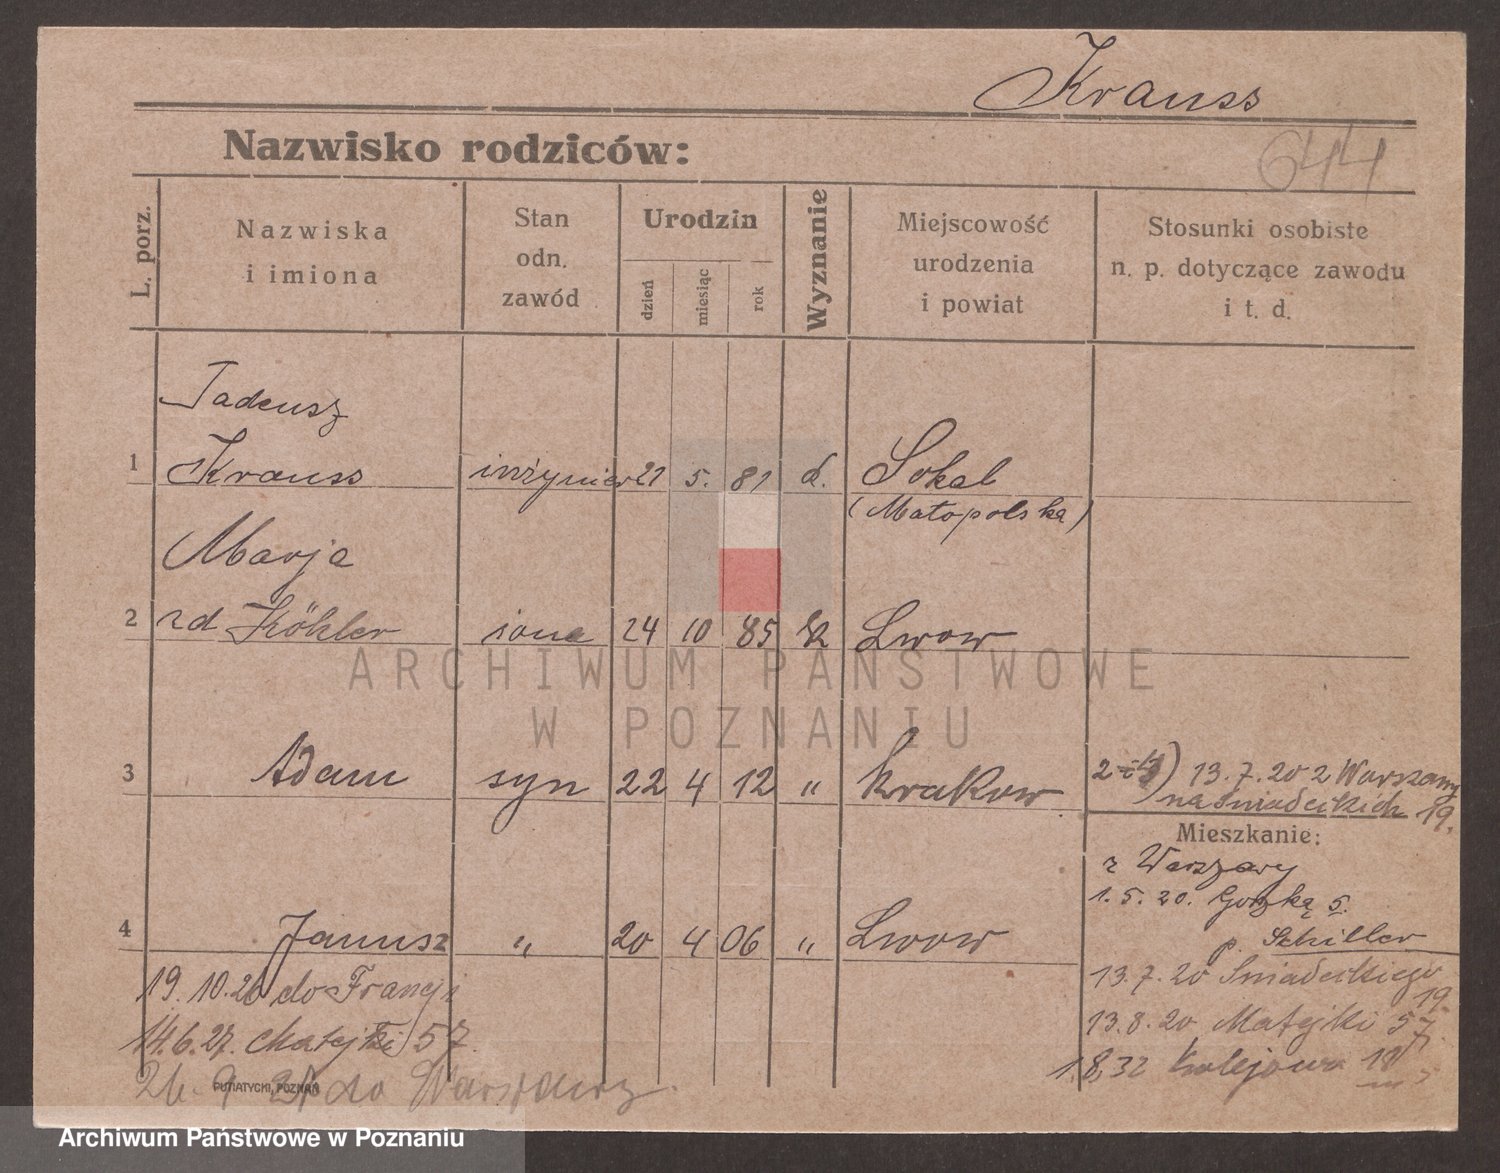 Krauss
644
Nazwisko rodziców:
L. porz.
Nazwiska
i imiona
Stan
odn.
zawód
Urodzin
dzień
miesiąc
rok
Wyznanie
Miejscowość
urodzenia
i powiat
Stosunki osobiste
n. p. dotyczące zawodu
i t. d.
Tadeusz
1 Krauss inżynier 21 5. 81 Sokal
(Małopolska)
Marja
2 zd Köhler żona 24 10 85 Lwow
3 Adam syn 22 4 12 " Krakow
2-4) 13.7.20 z Warszawy
na Śniadeckich 19.
Mieszkanie:
z Warszawy
1.5.20. 5.
p. Schiller
4 Janusz " 20 4 06 " Lwow
13.7.20 Śniadeckiego
19.
13.8.20 Matejki 57.
1.8,32 Kolejowa
19.10.26 do Francji
14.6.27. Matejki 57.
26.9 do Warszawy.
PUTIATYCKI, POZNAŃ
ARCHIWUM PAŃSTWOWE
W POZNANIU
Archiwum Państwowe w Poznaniu